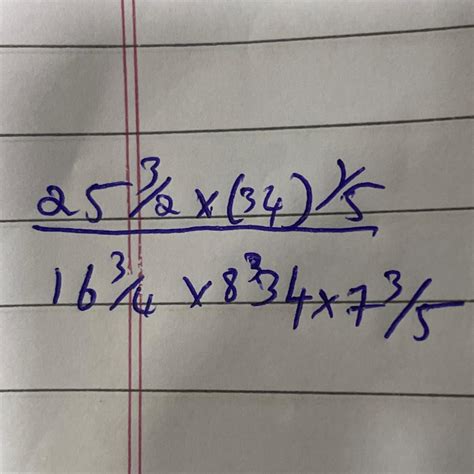 25 3/2 x (34) 1/5
16 3/4 x 8 3 34 x 7 3/5